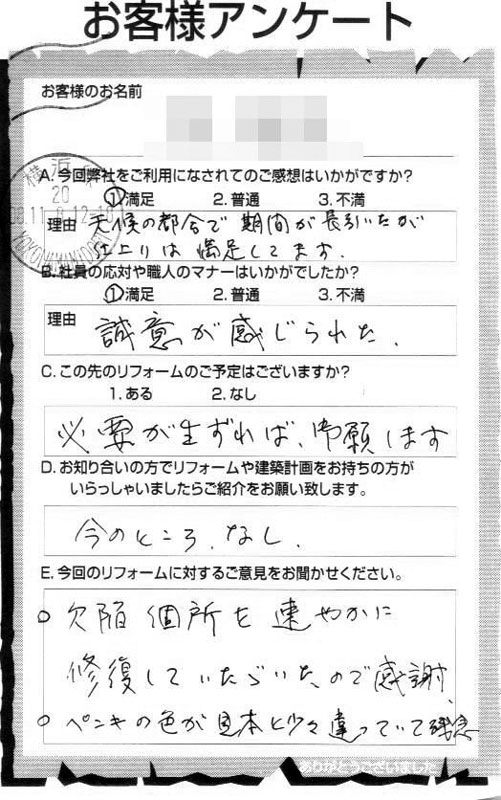 お客様アンケート
お客様のお名前
A. 今回弊社をご利用になされてのご感想はいかがですか?
1.満足 2.普通 3.不満
理由 天候の都合で期間が長引いたが
仕上りは満足してます.
B. 社員の応対や職人のマナーはいかがでしたか?
1.満足 2.普通 3.不満
理由 誠意が感じられた.
C. この先のリフォームのご予定はございますか?
1.ある 2.なし
必要が生ずれば、御願します
D. お知り合いの方でリフォームや建築計画をお持ちの方が
いらっしゃいましたらご紹介をお願い致します。
今のところ.なし.
E. 今回のリフォームに対するご意見をお聞かせください。
○ 欠陥個所を速やかに
修復していただいたので感謝.
○ ペンキの色が見本と少々違っていて残念
ありがとうございました